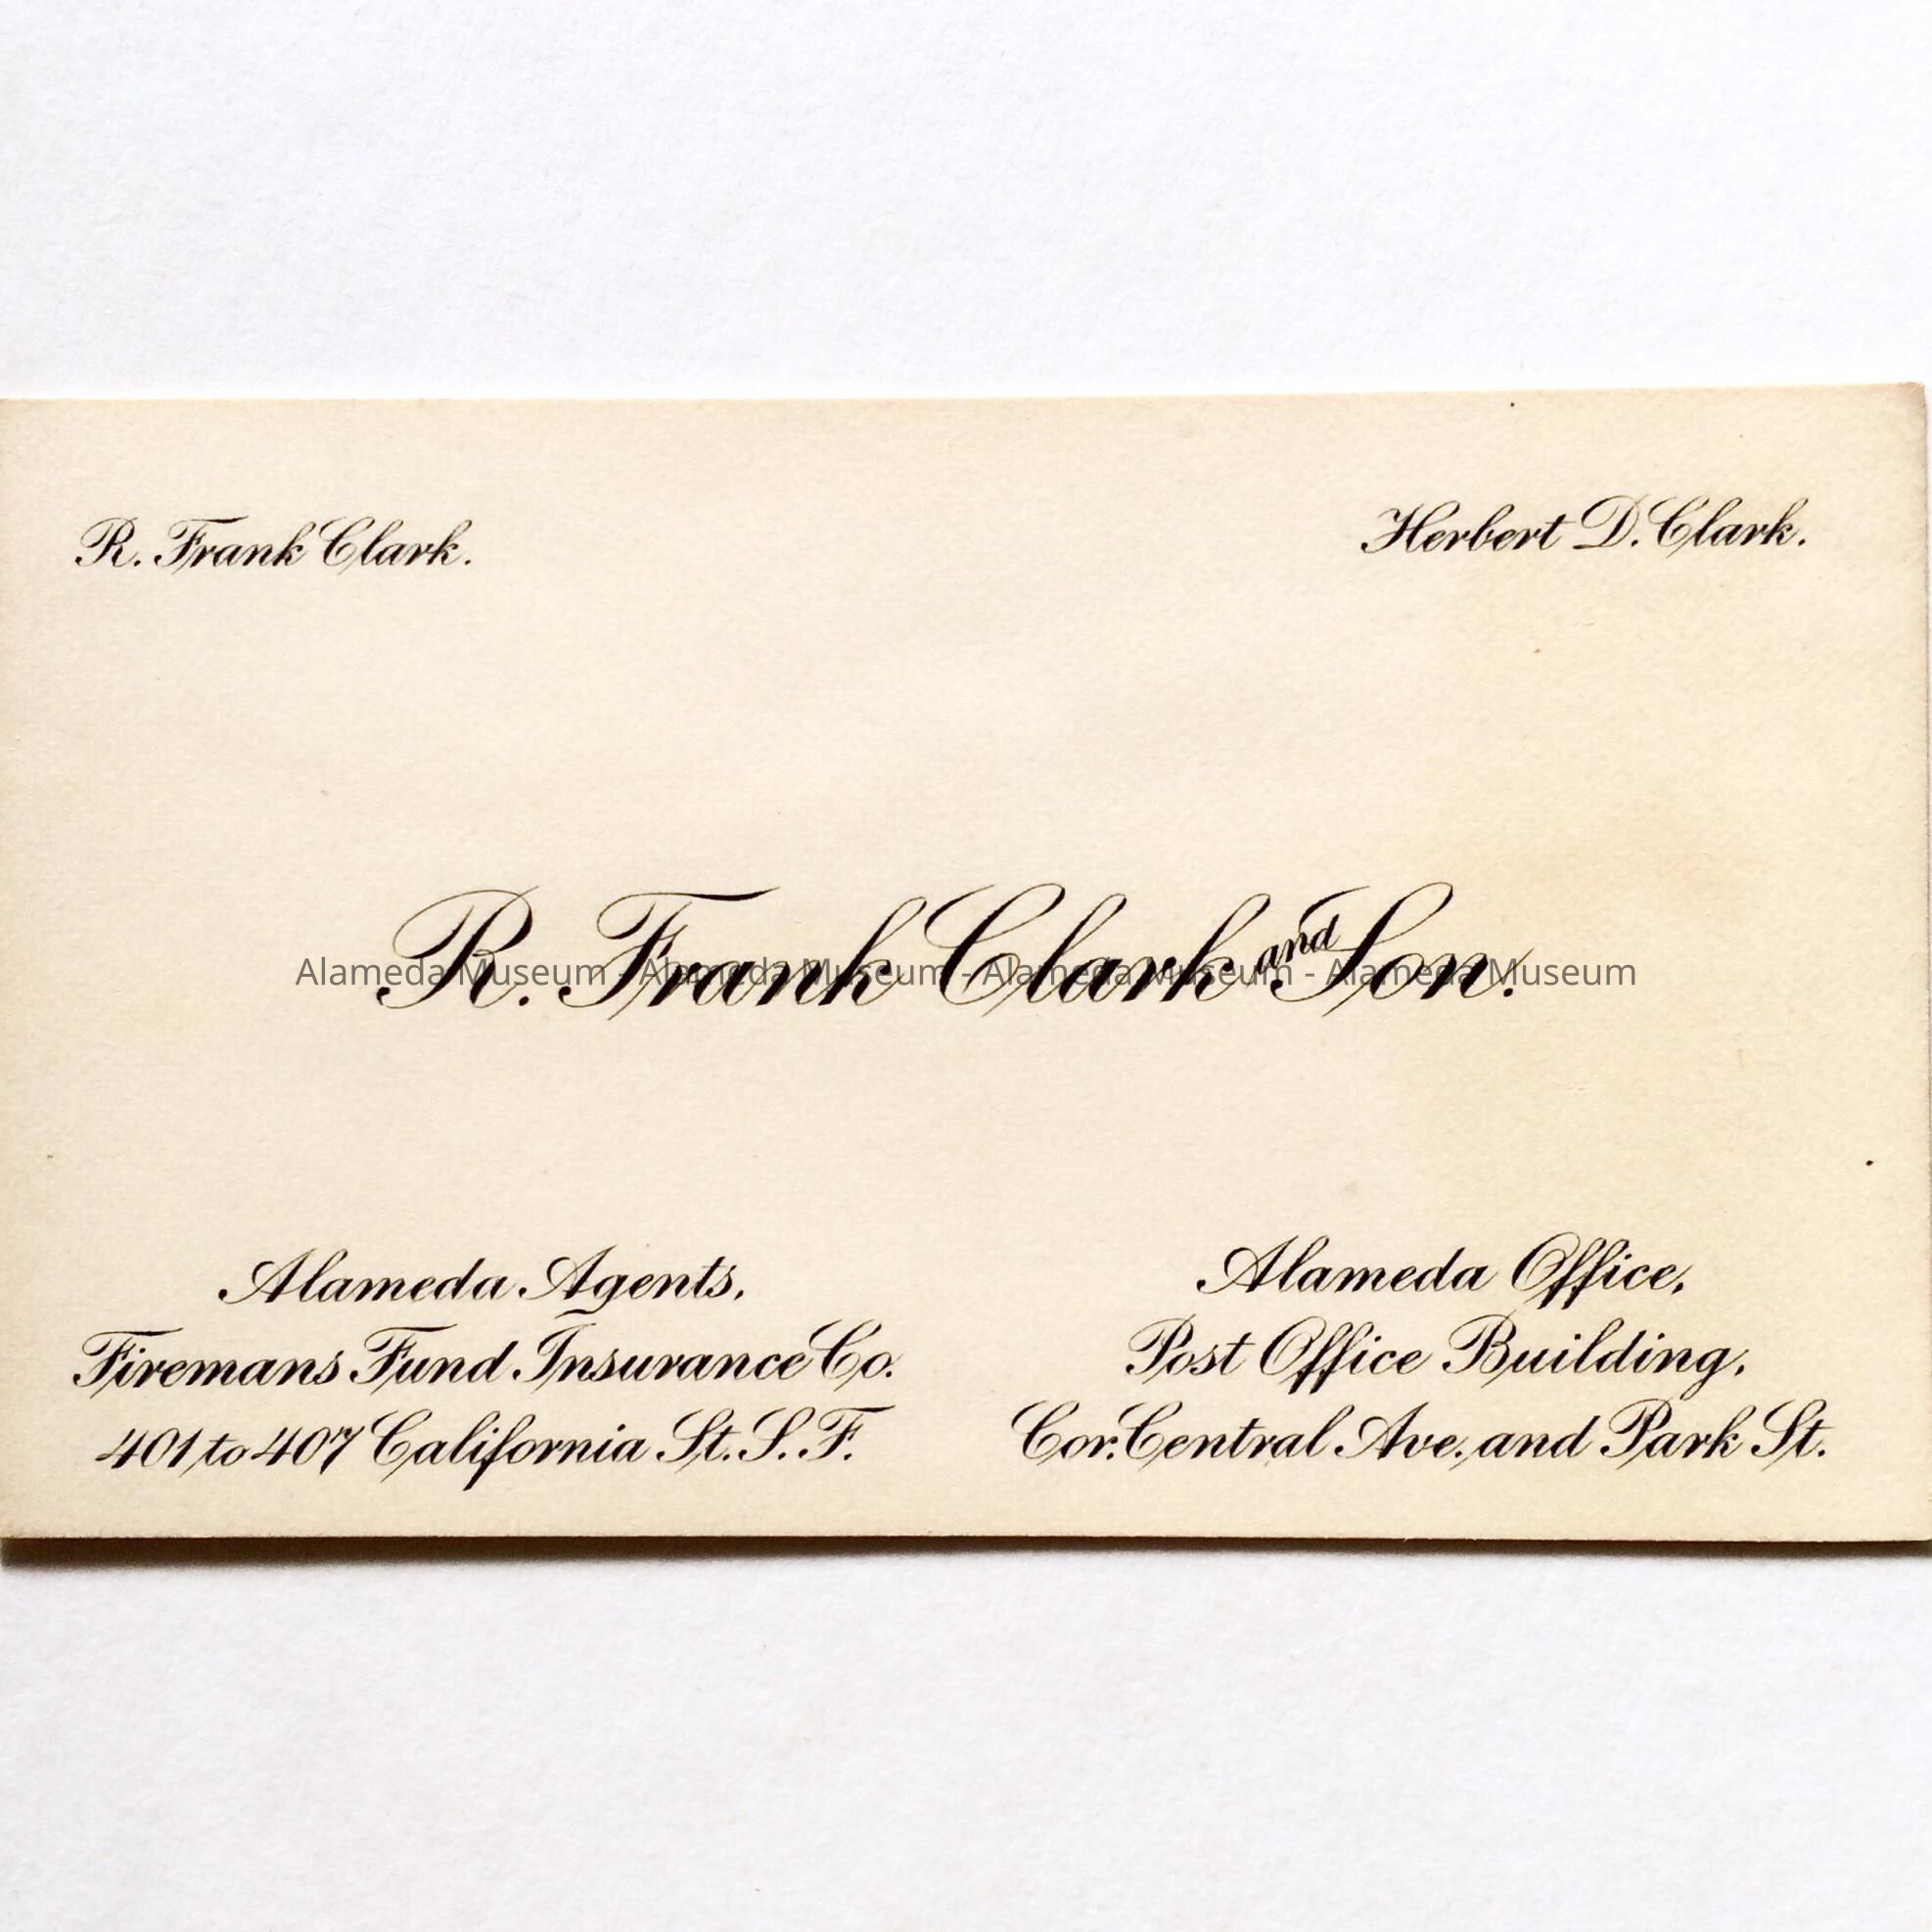 R. Frank Clark.
Herbert D. Clark.
R. Frank Clark and Son.
Alameda Museum - Alameda Museum - Alameda Museum - Alameda Museum
Alameda Agents,
Firemans Fund Insurance Co.
401 to 407 California St. S. F.
Alameda Office,
Post Office Building,
Cor. Central Ave. and Park St.